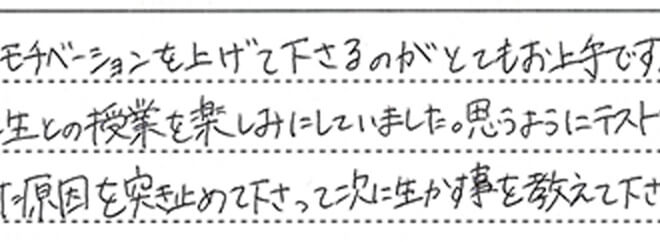 モチベーションを上げて下さるのがとてもお上手です
生との授業を楽しみにしていました。思うようにテスト
た原因を突き止めて下さって次に生かす事を教えて下さ